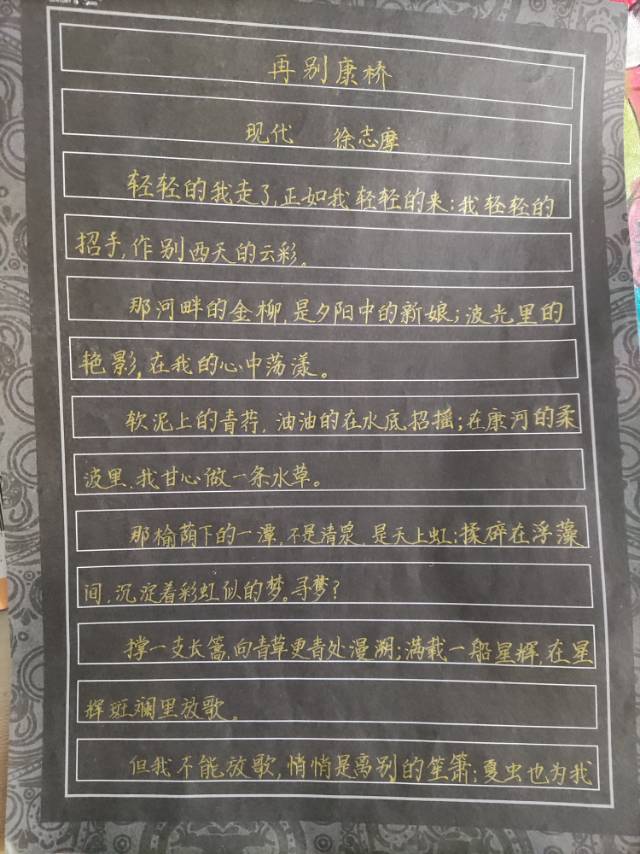 再别康桥
现代 徐志摩
轻轻的我走了,正如我轻轻的来;我轻轻的
招手,作别西天的云彩。
那河畔的金柳,是夕阳中的新娘;波光里的
艳影,在我的心中荡漾。
软泥上的青荇,油油的在水底招摇;在康河的柔
波里,我甘心做一条水草。
那榆荫下的一潭,不是清泉,是天上虹;揉碎在浮藻
间,沉淀着彩虹似的梦。寻梦?
撑一支长篙,向青草更青处漫溯;满载一船星辉,在星
辉斑斓里放歌。
但我不能放歌,悄悄是离别的笙箫;夏虫也为我